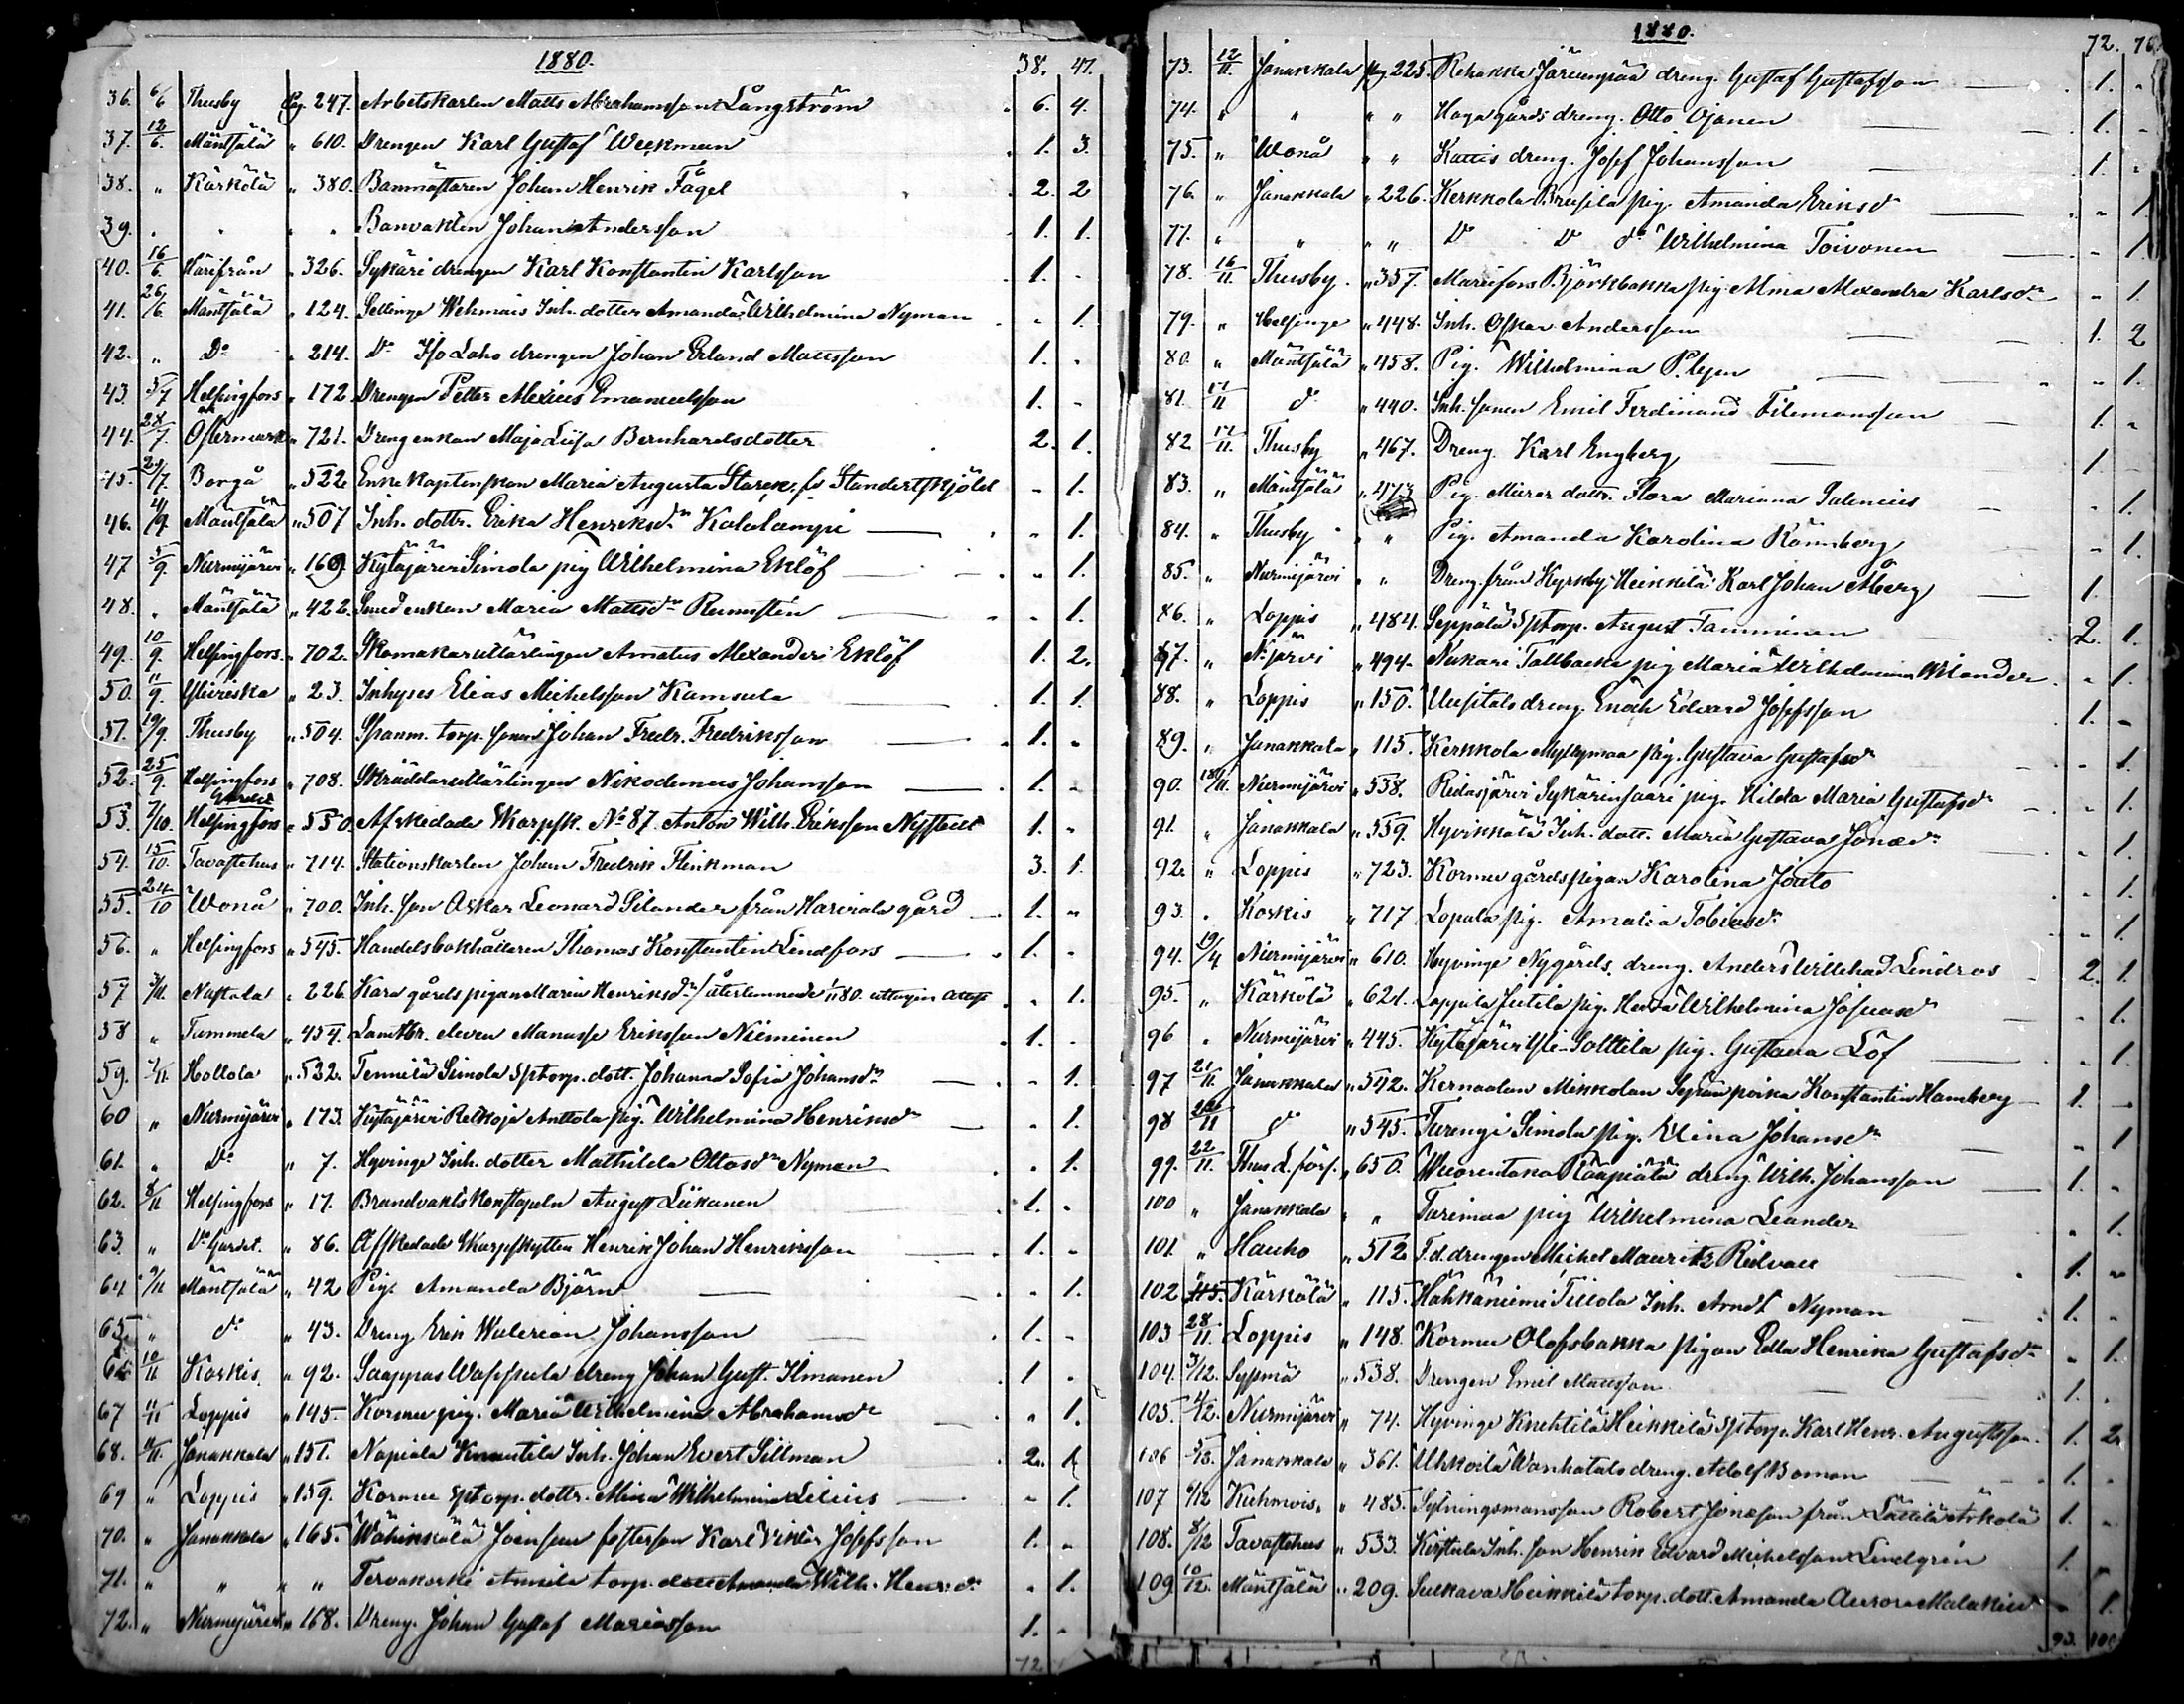 1880. 38. 47.
36. 6/6 Thusby Pag. 247. Arbetskarlen Matts Abrahamsson Långström 6. 4.
37. 12/6. Mäntsälä " 610. Drengen Karl Gustaf Weckman 1. 3.
38. " Kärkölä " 380. Banmästaren Johan Henrik Fågel 2. 2
39. " " " " Banvakten Johan Andersson 1. 1.
40. 16/6. Härifrån " 326. Sykäri drengen Karl Konstantin Karlsson 1. -
41. 26/6 Mäntsälä " 124. Sellinge Wehmais Inh. dotter Amanda Wilhelmina Nyman - 1.
42. " Do " 214. Do Iso Laho drengen Johan Erland Mattsson 1. -
43. 5/7 Helsingfors " 172 Drengen Petter Alexius Emanuelsson 1. -
44. 28/7. Östermark " 721. Drengenkan Maja Lisa Bernhardsdotter 2. 1.
45. /7. Borgå " 522 Enke Kaptenskan Maria Augusta Starck, fd Standertskjöld - 1.
46. 4/9. Mäntsälä " 507 Inh. dottr. Erika Henriksdr Kalalampi - 1.
47 5/9. Nurmijärvi " 169. Kytäjärvi Simola pig Wilhelmina Eklöf - 1.
48. " Mäntsälä " 422. Smedenkan Maria Mattsdr Rumstén - 1.
49. 10/9. Helsingfors. " 702. Skomakareutlärlingen Amatus Alexander Eklöf 1. 2.
50. 11/9. Yliviska " 23. Inhyses Elias Michelsson Kamsula 1. 1.
51. 19/9. Thusby " 504. Spanm. torp. sonen Johan Fredr. Fredriksson 1. -
52. 25/9. Helsingfors " 708. Skräddareutlärlingen Nikodemus Johansson 1. -
53. 7/10. Helsingfors Gardet " 530. Afskedade Skarpsk. No 87 Anton Wilh. Eriksson Nystedt 1. -
54. 15/10. Tavastehus " 714. Stationskarlen Johan Fredrik Flinkman 3. 1.
55. 24/10 Wonå " 700. Inh. son Oskar Leonard Silander från Harviala gård 1. -
56. " Helsingfors " 545. Handelsbokhållaren Thomas Konstantin Lindfors 1. -
57 3/11. Nastola " 226. Kara gårds pigan Maria Henriksdr / återlemnade 1/11 80. uttagen attest - 1.
58 " Tammela " 454. Lantbr. eleven Manasse Eriksson Nieminen 1. -
59. 7/11. Hollola " 522. Tennilä Simola Sptorp. dott. Johanna Sofia Johansdr - 1.
60 " Nurmijärvi " 173. Kytäjärvi Retkoja Anttola pig. Wilhelmina Henriksdr - 1.
61. " Do " 7. Hyvinge Inh. dotter Mathilda Ottosdr Nyman - 1.
62. 8/11 Helsingfors " 17. Brandvaktskonstapeln August Liikanen 1. -
63. " Do Gardet. " 86. Afskedade Skarpskytten Henrik Johan Henriksson 1. -
64 9/11 Mäntsälä " 42 Pig. Amanda Björn - 1.
65. " do " 43. Dreng Erik Walerian Johansson 1. -
66 10/11 Koskis. " 92. Saappas Wassula dreng Johan Gust. Ilmanen 1 -
67 11/11 Loppis " 145. Kormu pig. Maria Wilhelmina Abrahamsdr - 1.
68. 11/11. Janakkala " 151. Napiala Knuutila Inh. Johan Evert Sillman 2. 1
69 " Loppis " 159. Kormu Sptorp. dottr. Mina Wilhelmina Lilius - 1.
70. " Janakkala " 165. Wähinkälä Joensuu fosterson Karl Viktor Josefsson 1. -
71. " " " " Tervakoski Annila torp. dott. Amanda Wilh. Henr.dr - 1.
72. " Nurmijärvi " 168. Dreng. Johan Gustaf Mariasson 1. -
72
1880. 72. 76
73. 12/11. Janakkala pag 225. Rehakka Järvenpää dreng. Gustaf Gustafsson 1. -
74. " " " " Haga gårds dreng. Otto Ojanen 1. -
75. " Wonå " " Kattis dreng. Josef Johansson 1. -
76. " Janakkala " 226. Kerkkola Brusila pig. Amanda Eriksdr - 1.
77. " " " " Do Do do Wilhelmina Toivonen - 1.
78. 16/11. Thusby. " 357. Mariefors Björkbacka pig. Alma Alexandra Karlsdr - 1.
79. " Helsinge " 448. Inh. Oskar Andersson 1. 2
80. " Mäntsälä " 458. Pig. Wilhelmina - 1.
81. 17/11 do " 440. Inh. sonen Emil Ferdinand Filemonsson 1. -
82 17/11. Thusby " 467. Dreng. Karl Engberg 1. -
83. " Mäntsälä " 473 Pig. Murar dottr. Flora Mariana Salenius - 1.
84. " Thusby " " Pig. Amanda Karolina Rönnberg - 1.
85. " Nurmijärvi " " Dreng. från Kyrkby Heikkilä Karl Johan Åberg 1.
86. " Loppis " 484. Seppälä Sptorp. August Tamminen 2. 1.
87. " N.järvi " 494. Nukari Tallbacka pig Maria Wilhelmina Wilander - 1.
88. " Loppis " 150. Uusitalo dreng. Enoch Edvard Josefsson 1. -
89. " Janakkala " 115. Kerkkola Myllymaa pig. Gustava Gustafsdr - 1.
90. 18/11. Nurmijärvi " 538. Ridasjärvi Sykärinsaari pig. Hilda Maria Gustafsdr - 1.
91. " Janakkala " 559. Hyvikkälä Inh. dott. Maria Gustava Jonaedr - 1.
92. " Loppis " 723. Kormu gårds pigan Karolina Jouto - 1.
93. " Koskis " 717 Lopala pig. Amalia Tobiasdr - 1.
94. 19/4 Nurmijärvi " 610. Hyvinge Nygårds dreng. Anders Willehad Lindros 2. 1.
95. " Kärkölä " 621. Loppila Jutila pig. Wilhelmina Josuasdr - 1.
96 " Nurmijärvi " 445. Kytäjärvi Yli-Solttila pig. Gustava Löf - 1.
97 21/11. Janakkala " 542. Kernaalan Mikkolan Sepän poika Konstantin Hamberg 1. -
98 /11 do " 545. Turengi Simola pig. Elina Johansdr - 1
99. 22/11. Thus L. förs. " 650. Wuorentaka Rääpiälä dreng Wilh. Johansson 1. -
100 " Janakkala " " Tarinmaa pig Wilhelmina Leander - 1.
101. " Hauho " 512 F.d. drengen Michel Mauritz Ridvall 1. -
102 Kärkölä " 115. Hähkäniemi Tillola Inh. Arndt Nyman 1. -
103 28/11. Loppis " 148. Kormu Olofsbacka pigan Edla Henrika Gustafsdr - 1.
104. 3/12. Sysmä " 538. Drengen Emil Mattsson 1. -
105. 4/12. Nurmijärvi " 74. Hyvinge Knehtilä Heikkilä Sptorp. Karl Henr. Augustsson. 1. 2
106 5/12. Janakkala " 361. Uhkoila Wanhatalo dreng. Adolf Boman 1. -
107 6/12 Kuhmois. " 483. Sytningsmansson Robert Jonæson från Lättilä Arkola 1. -
108. 8/12 Tavastehus " 533. Kirstula Inh. son Henrik Edvard Michelsson Lindgrén 1. -
109 10/12. Mäntsälä " 209. Sulkava Heikkilä torp. dott. Amanda Aurora Malakiasdr - 1.
93. 100